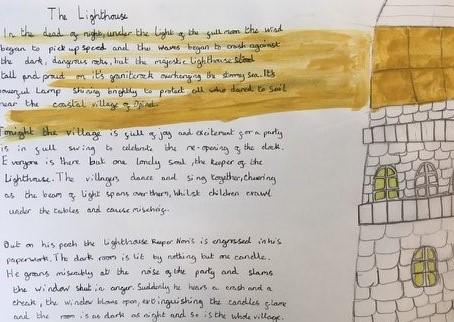 The Lighthouse
In the dead of night, under the light of the full moon the wind
began to pick up speed and the waves began to crash against
the dark, dangerous rocks, but the majestic lighthouse stood
tall and proud on it's rock overhanging the stormy sea. It's
powerful lamp shining brightly to protect all who dared to sail
near the coastal village of
Tonight the village is full of joy and excitement for a party
is in full swing to celebrate the re-opening of the dock.
Everyone is there but one lonely soul, the keeper of the
Lighthouse. The villagers dance and sing together, cheering
as the beam of light spans over them, whilst children crawl
under the tables and cause mischeif.
But on his perch the Lighthouse Keeper is engrossed in his
paperwork. The dark room is lit by nothing but one candle.
He groans miserably at the noise of the party and slams
the window shut in anger. Suddenly he hears a crash and a
creak, the window blows open, extinguishing the candles flame
and the room is as dark as night and so is the whole village.